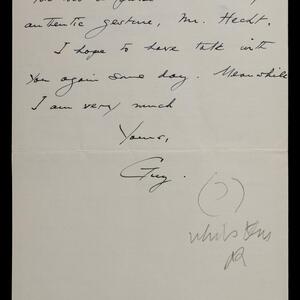 authentic gesture, Mr. Hecht.
I hope to have talk with
you again some day. Meanwhile
I am very much
Yours,
Guy.
(?)